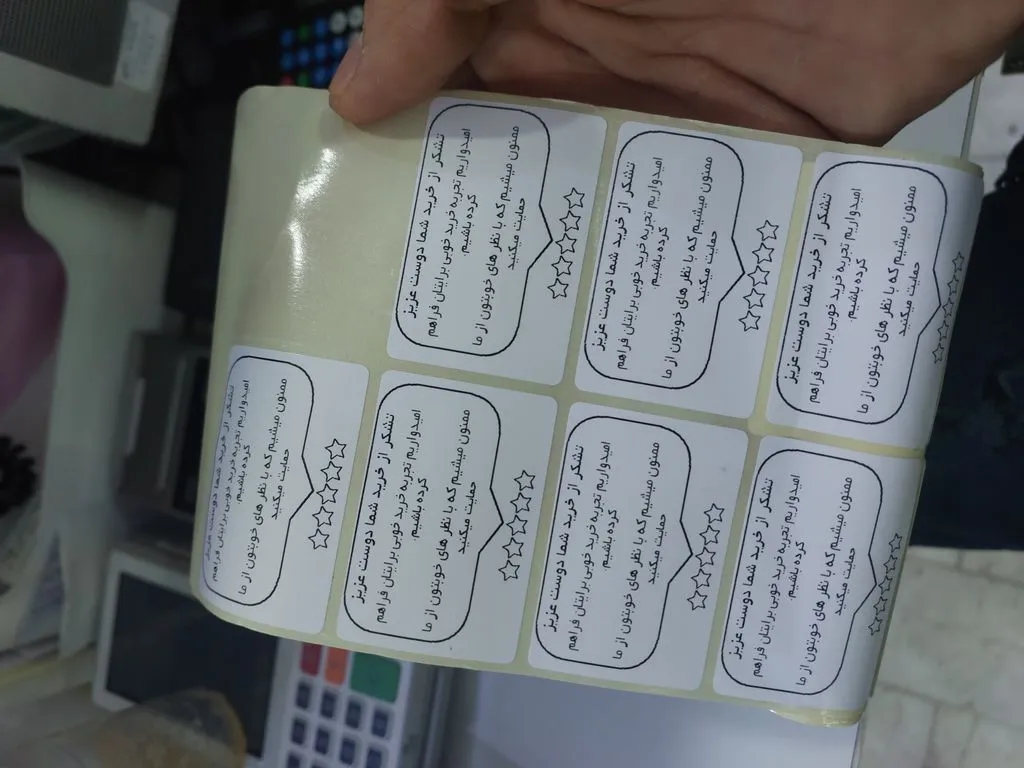 تشکر از خرید شما دوست عزیز
امیدواریم تجربه خرید خوبی برایتان فراهم
کرده باشیم.
ممنون میشیم که با نظر های خوبتون از ما
حمایت میکنید
تشکر از خرید شما دوست عزیز
امیدواریم تجربه خرید خوبی برایتان فراهم
کرده باشیم.
ممنون میشیم که با نظر های خوبتون از ما
حمایت میکنید
تشکر از خرید شما دوست عزیز
امیدواریم تجربه خرید خوبی برایتان فراهم
کرده باشیم.
ممنون میشیم که با نظر های خوبتون از ما
حمایت میکنید
تشکر از خرید شما دوست عزیز
امیدواریم تجربه خرید خوبی برایتان فراهم
کرده باشیم.
ممنون میشیم که با نظر های خوبتون از ما
حمایت میکنید
تشکر از خرید شما دوست عزیز
امیدواریم تجربه خرید خوبی برایتان فراهم
کرده باشیم.
ممنون میشیم که با نظر های خوبتون از ما
حمایت میکنید
تشکر از خرید شما دوست عزیز
امیدواریم تجربه خرید خوبی برایتان فراهم
کرده باشیم.
ممنون میشیم که با نظر های خوبتون از ما
حمایت میکنید
تشکر از خرید شما دوست عزیز
امیدواریم تجربه خرید خوبی برایتان فراهم
کرده باشیم.
ممنون میشیم که با نظر های خوبتون از ما
حمایت میکنید